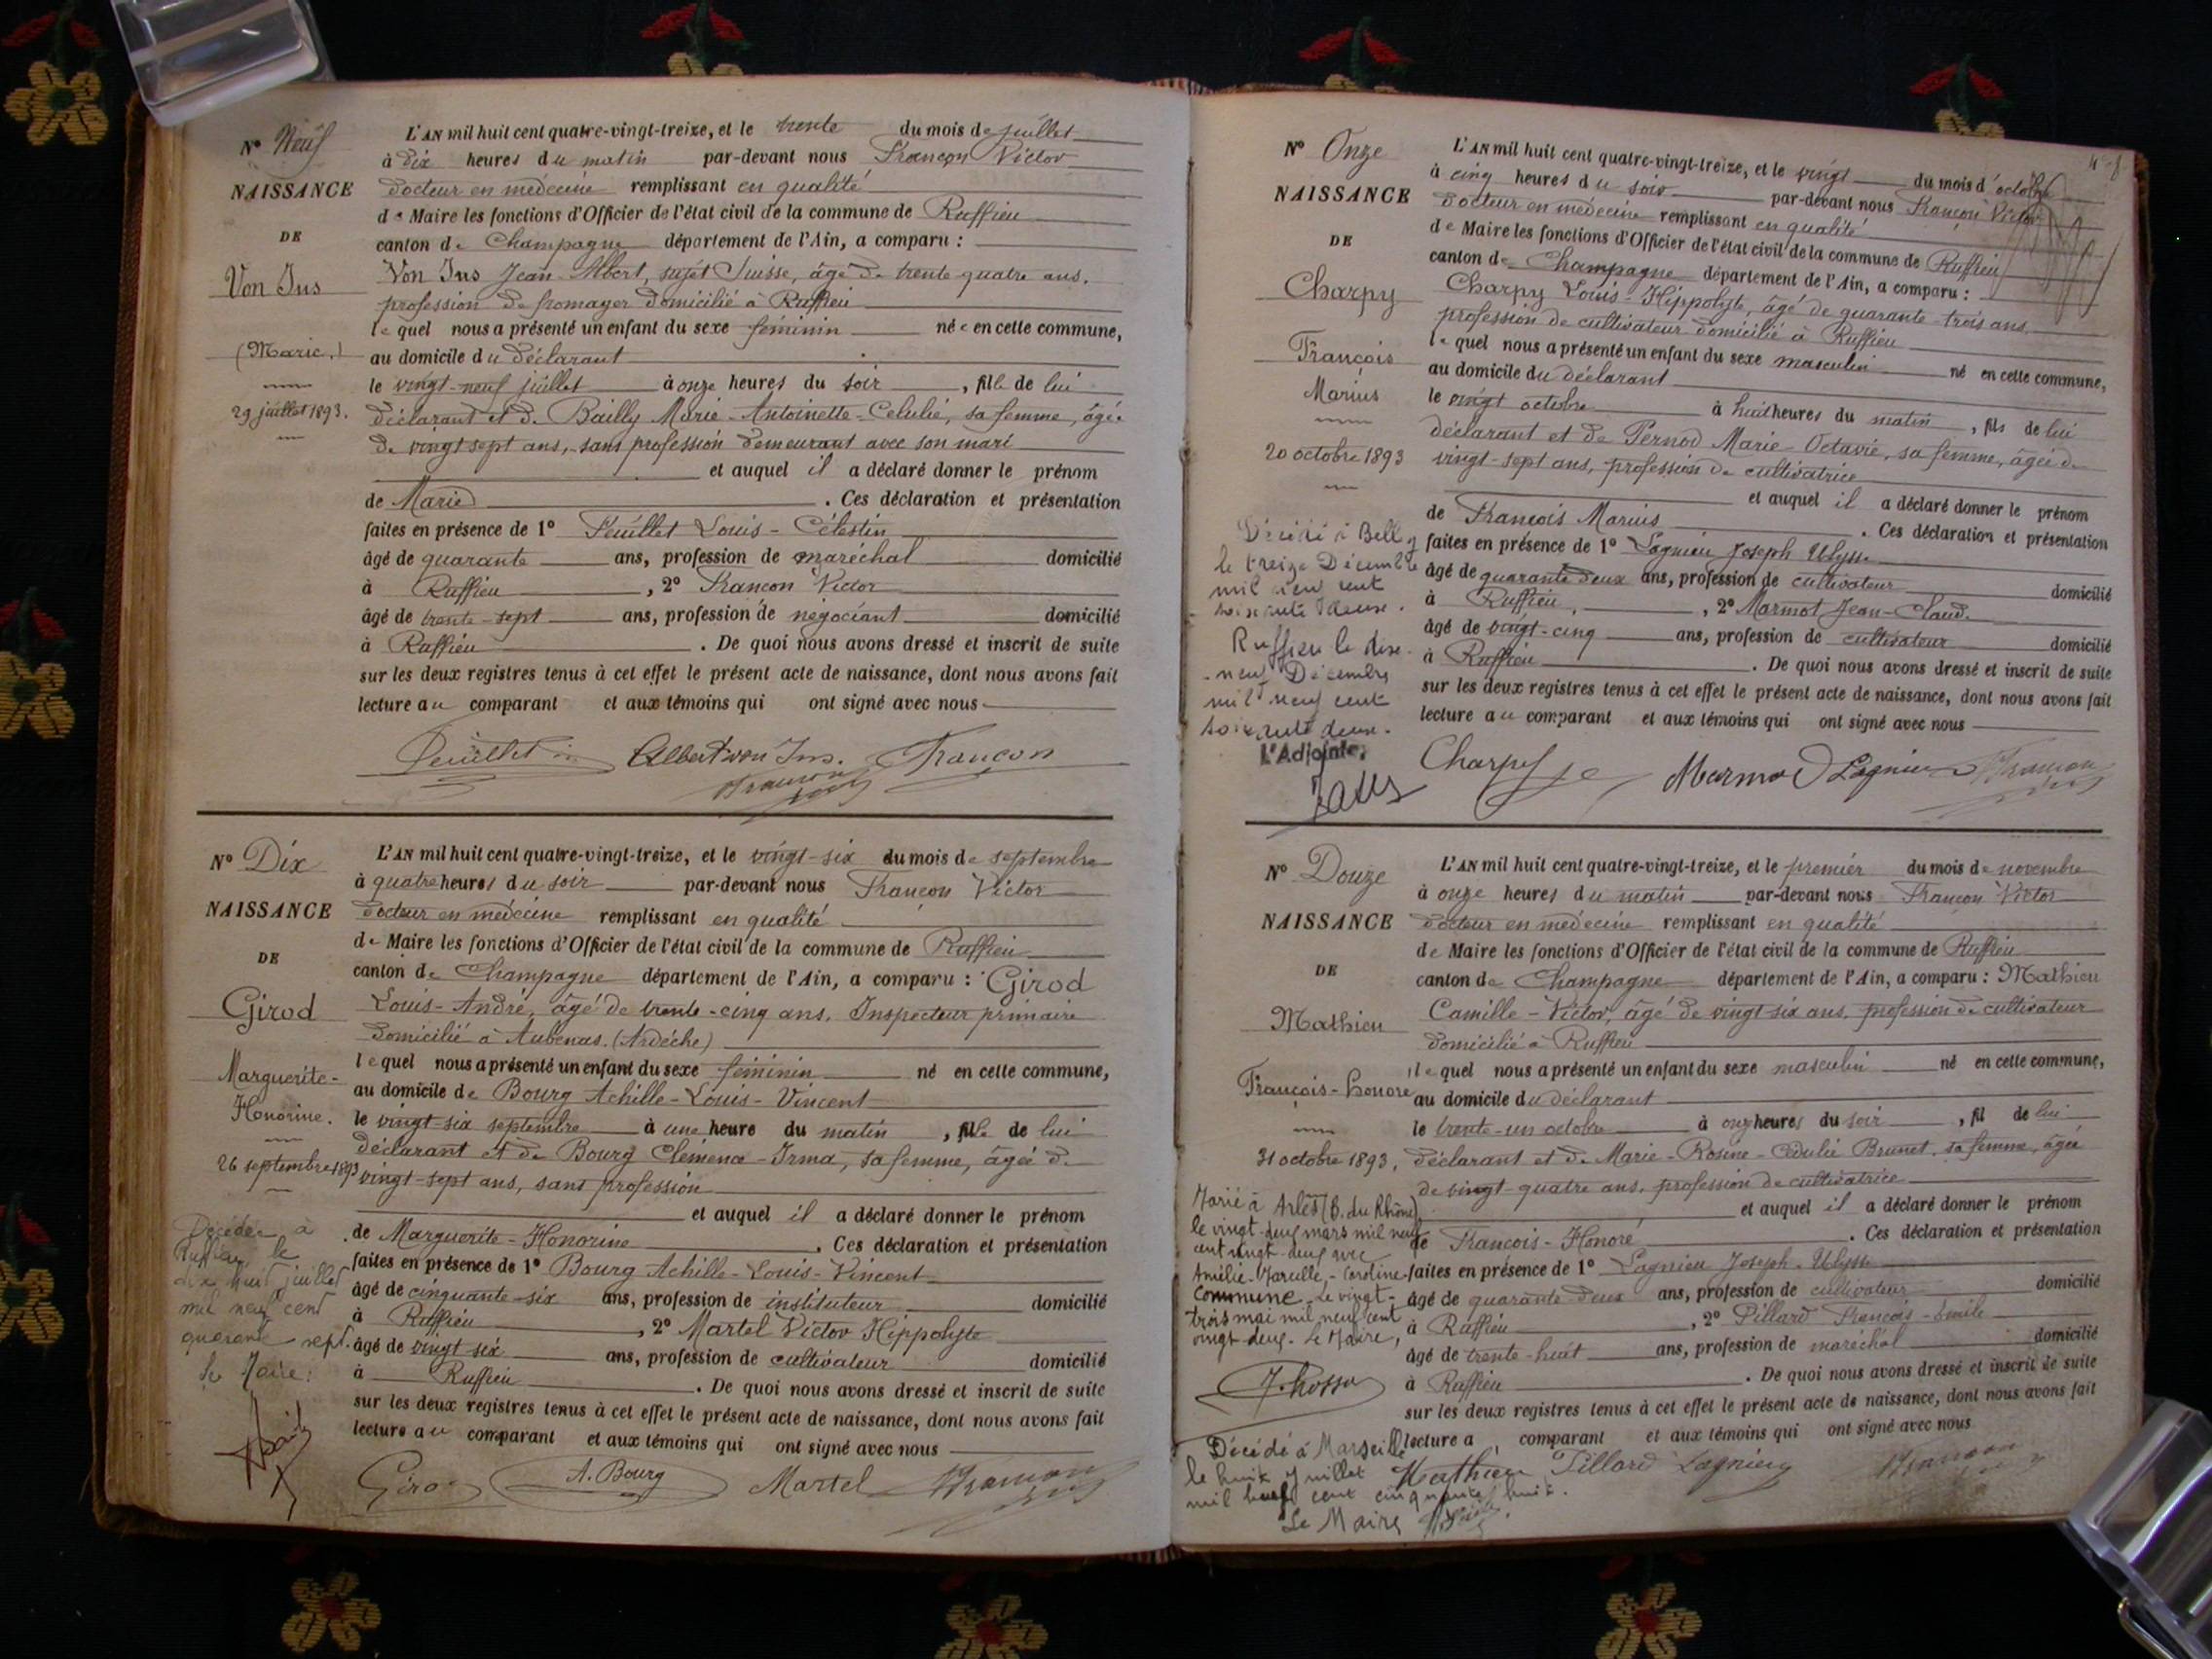 N° Neuf
NAISSANCE
DE
Von Ins
(Marie.)
29 juillet 1893.
L'AN mil huit cent quatre-vingt-treize, et le trente du mois de juillet
à dix heures du matin par-devant nous Françon Victor
docteur en médecine remplissant en qualité
de Maire les fonctions d'Officier de l'état civil de la commune de Ruffieu
canton de Champagne département de l'Ain, a comparu :
Von Ins Jean Albert, sujet Suisse, âgé de trente quatre ans.
profession de fromager domicilié à Ruffieu
lequel nous a présenté un enfant du sexe féminin née en cette commune,
au domicile du déclarant
le vingt-neuf juillet à onze heures du soir, fille de lui
déclarant et de Bailly Marie-Antoinette-Célulie, sa femme, âgée
de vingt sept ans, sans profession demeurant avec son mari
et auquel il a déclaré donner le prénom
de Marie. Ces déclaration et présentation
faites en présence de 1° Feuillet Louis-Célestin
âgé de quarante ans, profession de maréchal domicilié
à Ruffieu, 2° Françon Victor
âgé de trente-sept ans, profession de négociant domicilié
à Ruffieu. De quoi nous avons dressé et inscrit de suite
sur les deux registres tenus à cet effet le présent acte de naissance, dont nous avons fait
lecture au comparant et aux témoins qui ont signé avec nous
Feuillet Albert von Ins. Françon
Françon
N° Dix
NAISSANCE
DE
Girod
Marguerite-
Honorine.
26 septembre 1893
Décédée à
Ruffieu le
dix huit juillet
mil neuf cent
quarante sept.
Le Maire:
L'AN mil huit cent quatre-vingt-treize, et le vingt-six du mois de septembre
à quatre heures du soir par-devant nous Françon Victor
docteur en médecine remplissant en qualité
de Maire les fonctions d'Officier de l'état civil de la commune de Ruffieu
canton de Champagne département de l'Ain, a comparu : Girod
Louis-André, âgé de trente-cinq ans, Inspecteur primaire
domicilié à Aubenas. (Ardèche)
lequel nous a présenté un enfant du sexe féminin né en cette commune,
au domicile de Bourg Achille-Louis-Vincent
le vingt-six septembre à une heure du matin, fille de lui
déclarant et de Bourg Clémence-Irma, sa femme, âgée de
vingt-sept ans, sans profession
et auquel il a déclaré donner le prénom
de Marguerite-Honorine. Ces déclaration et présentation
faites en présence de 1° Bourg Achille-Louis-Vincent
âgé de cinquante-six ans, profession de instituteur domicilié
à Ruffieu, 2° Martel Victor Hippolyte
âgé de vingt six ans, profession de cultivateur domicilié
à Ruffieu. De quoi nous avons dressé et inscrit de suite
sur les deux registres tenus à cet effet le présent acte de naissance, dont nous avons fait
lecture au comparant et aux témoins qui ont signé avec nous
Girod A. Bourg Martel Françon
N° Onze
NAISSANCE
DE
Charpy
François
Marius
20 octobre 1893
Décédé à Belley
le treize Décembre
mil neuf cent
soixante deux.
Ruffieu le dix-
neuf Décembre
mil neuf cent
soixante deux.
L'Adjoint,
L'AN mil huit cent quatre-vingt-treize, et le vingt du mois d'octobre
à cinq heures du soir par-devant nous Françon Victor
docteur en médecine remplissant en qualité
de Maire les fonctions d'Officier de l'état civil de la commune de Ruffieu
canton de Champagne département de l'Ain, a comparu :
Charpy Louis-Hippolyte, âgé de quarante-trois ans
profession de cultivateur domicilié à Ruffieu
lequel nous a présenté un enfant du sexe masculin né en cette commune,
au domicile du déclarant
le vingt octobre à huit heures du matin, fils de lui
déclarant et de Pernod Marie-Octavie, sa femme, âgée de
vingt-sept ans, profession de cultivatrice
et auquel il a déclaré donner le prénom
de François Marius. Ces déclaration et présentation
faites en présence de 1° Lagnieu Joseph Ulysse
âgé de quarante deux ans, profession de cultivateur domicilié
à Ruffieu, 2° Marmot Jean-Claude
âgé de vingt-cinq ans, profession de cultivateur domicilié
à Ruffieu. De quoi nous avons dressé et inscrit de suite
sur les deux registres tenus à cet effet le présent acte de naissance, dont nous avons fait
lecture au comparant et aux témoins qui ont signé avec nous
Charpy Mermod Lagnieu Françon
N° Douze
NAISSANCE
DE
Mathieu
François-honoré
31 octobre 1893,
Marié à Arles (B. du Rhône)
le vingt-deux mars mil neuf
cent vingt-deux avec
Amélie-Marcelle-Caroline
Commune. Le vingt-
trois mai mil neuf cent
vingt deux. Le Maire,
Décédé à Marseille
le huit Juillet
mil neuf cent cinquante huit.
Le Maire
L'AN mil huit cent quatre-vingt-treize, et le premier du mois de novembre
à onze heures du matin par-devant nous Françon Victor
docteur en médecine remplissant en qualité
de Maire les fonctions d'Officier de l'état civil de la commune de Ruffieu
canton de Champagne département de l'Ain, a comparu : Mathieu
Camille-Victor, âgé de vingt six ans, profession de cultivateur
domicilié à Ruffieu
lequel nous a présenté un enfant du sexe masculin né en cette commune,
au domicile du déclarant
le trente-un octobre à onze heures du soir, fil de lui
déclarant et de Marie-Rosine-Cédulie Brunet, sa femme, âgée
de vingt-quatre ans, profession de cultivatrice
et auquel il a déclaré donner le prénom
de François-Honoré. Ces déclaration et présentation
faites en présence de 1° Lagnieu Joseph-Ulysse
âgé de quarante deux ans, profession de cultivateur domicilié
à Ruffieu, 2° Pillard François-Emile
âgé de trente-huit ans, profession de maréchal domicilié
à Ruffieu. De quoi nous avons dressé et inscrit de suite
sur les deux registres tenus à cet effet le présent acte de naissance, dont nous avons fait
lecture a comparant et aux témoins qui ont signé avec nous
Mathieu Pillard Lagnieu Françon